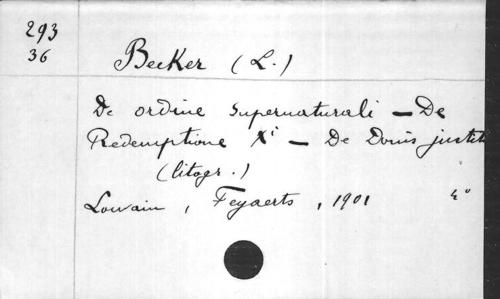 293
36
Becker (L.)
De ordine supernaturali – De
Redemptione Xi – De Donis justit
(litogr.)
Louvain, Feyaerts, 1901 4°